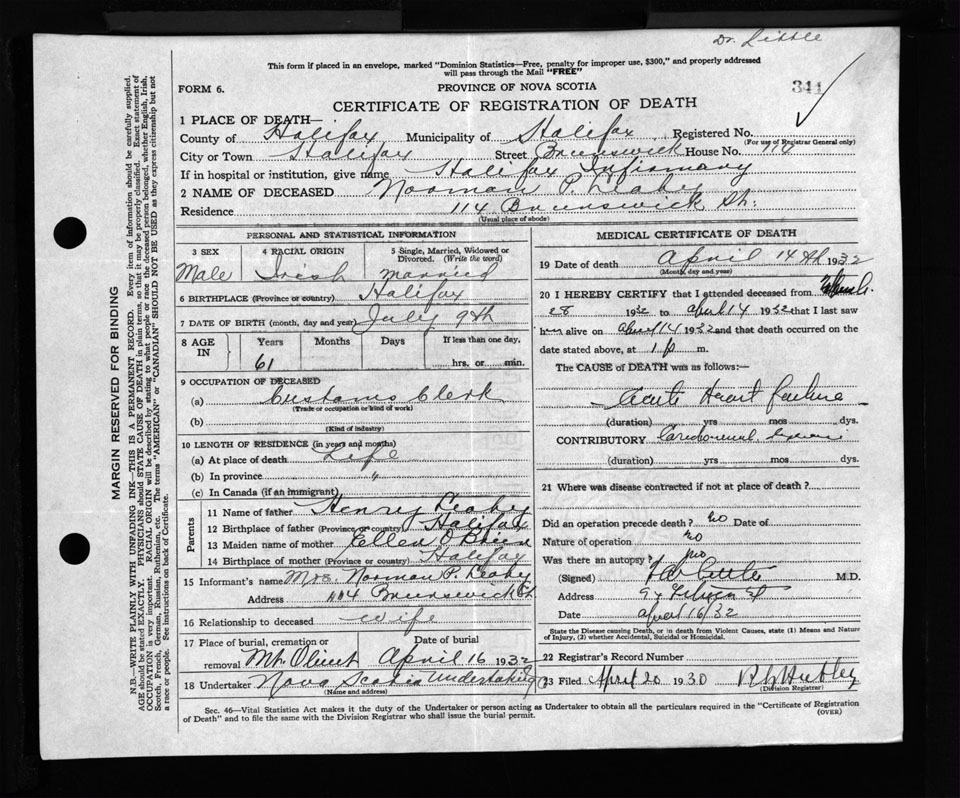 Dr. Little
This form if placed in an envelope, marked "Dominion Statistics—Free, penalty for improper use, $300," and properly addressed
will pass through the Mail "FREE"
FORM 6.
PROVINCE OF NOVA SCOTIA
341
CERTIFICATE OF REGISTRATION OF DEATH
1 PLACE OF DEATH—
County of Halifax Municipality of Halifax Registered No.
(For use of Registrar General only)
City or Town Halifax Street Brunswick House No. 114
If in hospital or institution, give name Halifax Infirmary
2 NAME OF DECEASED Norman P. Leahy
Residence 114 Brunswick St.
(Usual place of abode)
PERSONAL AND STATISTICAL INFORMATION
3 SEX 4 RACIAL ORIGIN 5 Single, Married, Widowed or
Divorced. (Write the word)
Male Irish married
6 BIRTHPLACE (Province or country) Halifax
7 DATE OF BIRTH (month, day and year) July 9th
8 AGE IN Years Months Days If less than one day,
61 hrs. or min.
9 OCCUPATION OF DECEASED
(a) Customs Clerk
(Trade or occupation or kind of work)
(b)
(Kind of industry)
10 LENGTH OF RESIDENCE (in years and months)
(a) At place of death Life
(b) In province "
(c) In Canada (if an immigrant)
Parents
11 Name of father Henry Leahy
12 Birthplace of father (Province or country) Halifax
13 Maiden name of mother Ellen O'Brien
14 Birthplace of mother (Province or country) Halifax
15 Informant's name Mrs. Norman P. Leahy
Address 114 Brunswick St.
16 Relationship to deceased wife
17 Place of burial, cremation or Date of burial
removal Mt. Olivet April 16 1932
18 Undertaker Nova Scotia Undertaking Co
(Name and address)
MEDICAL CERTIFICATE OF DEATH
19 Date of death April 14th 1932
(Month, day and year)
20 I HEREBY CERTIFY that I attended deceased from
28 1932 to april 14 1932 that I last saw
him alive on april 14 1932 and that death occurred on
date stated above, at 1 p m.
The CAUSE of DEATH was as follows:—
Acute Heart failure
(duration) yrs mos dys.
CONTRIBUTORY
(duration) yrs mos dys.
21 Where was disease contracted if not at place of death?
Did an operation precede death? no Date of
Nature of operation no
Was there an autopsy? no
(Signed) M.D.
Address
Date april 16/32
State the Disease causing Death, or in death from Violent Causes, state (1) Means and Nature
of Injury, (2) whether Accidental, Suicidal or Homicidal.
22 Registrar's Record Number
23 Filed April 20 1930
(Division Registrar)
Sec. 46—Vital Statistics Act makes it the duty of the Undertaker or person acting as Undertaker to obtain all the particulars required in the "Certificate of Registration
of Death" and to file the same with the Division Registrar who shall issue the burial permit.
(OVER)
MARGIN RESERVED FOR BINDING
N.B.—WRITE PLAINLY WITH UNFADING INK—THIS IS A PERMANENT RECORD. Every item of information should be carefully supplied.
AGE should be stated EXACTLY. PHYSICIANS should STATE CAUSE OF DEATH in plain terms, so that it may be properly classified. Exact statement of
OCCUPATION is very important. RACIAL ORIGIN will be described by stating to what people or race the deceased person belonged, whether English, Irish,
Scotch, French, German, Russian, Ruthenian, etc. The terms "AMERICAN" or "CANADIAN" SHOULD NOT BE USED as they express citizenship but not
a race or people. See instructions on back of Certificate.